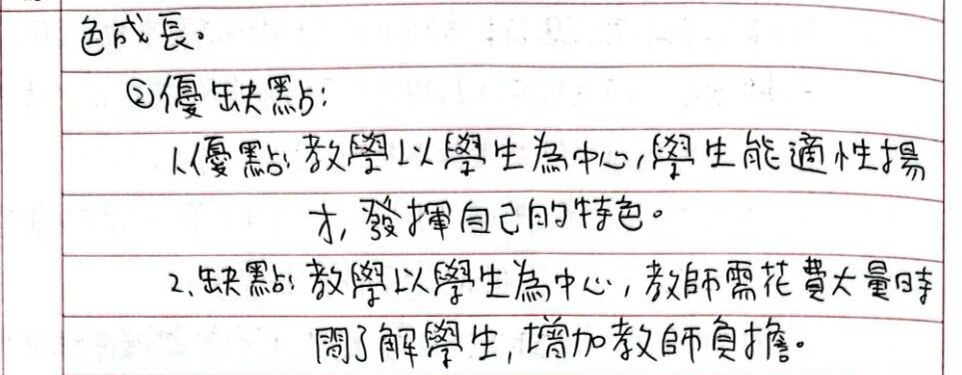 色成長。
②優缺點:
1.優點:教學以學生為中心,學生能適性揚
才,發揮自己的特色。
2.缺點:教學以學生為中心,教師需花費大量時
間了解學生,增加教師負擔。